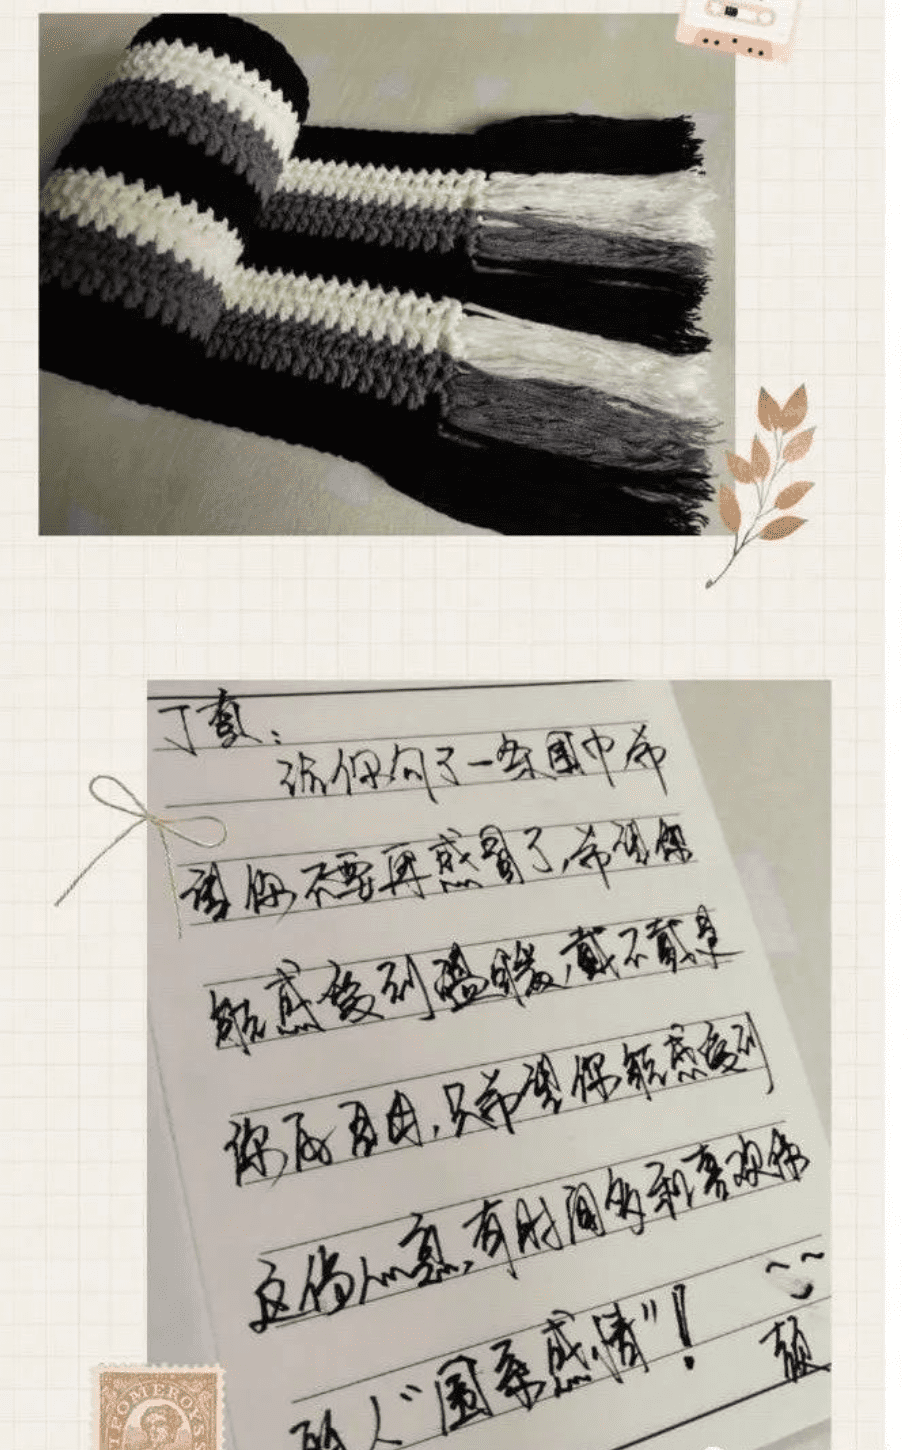 给你勾了一条围巾希
望你不要再感冒了希望你
能感受到温暖,戴不戴是
你的自由,只希望你能感受到
这份心意,有时间多和喜欢你
的人“围系感情”!